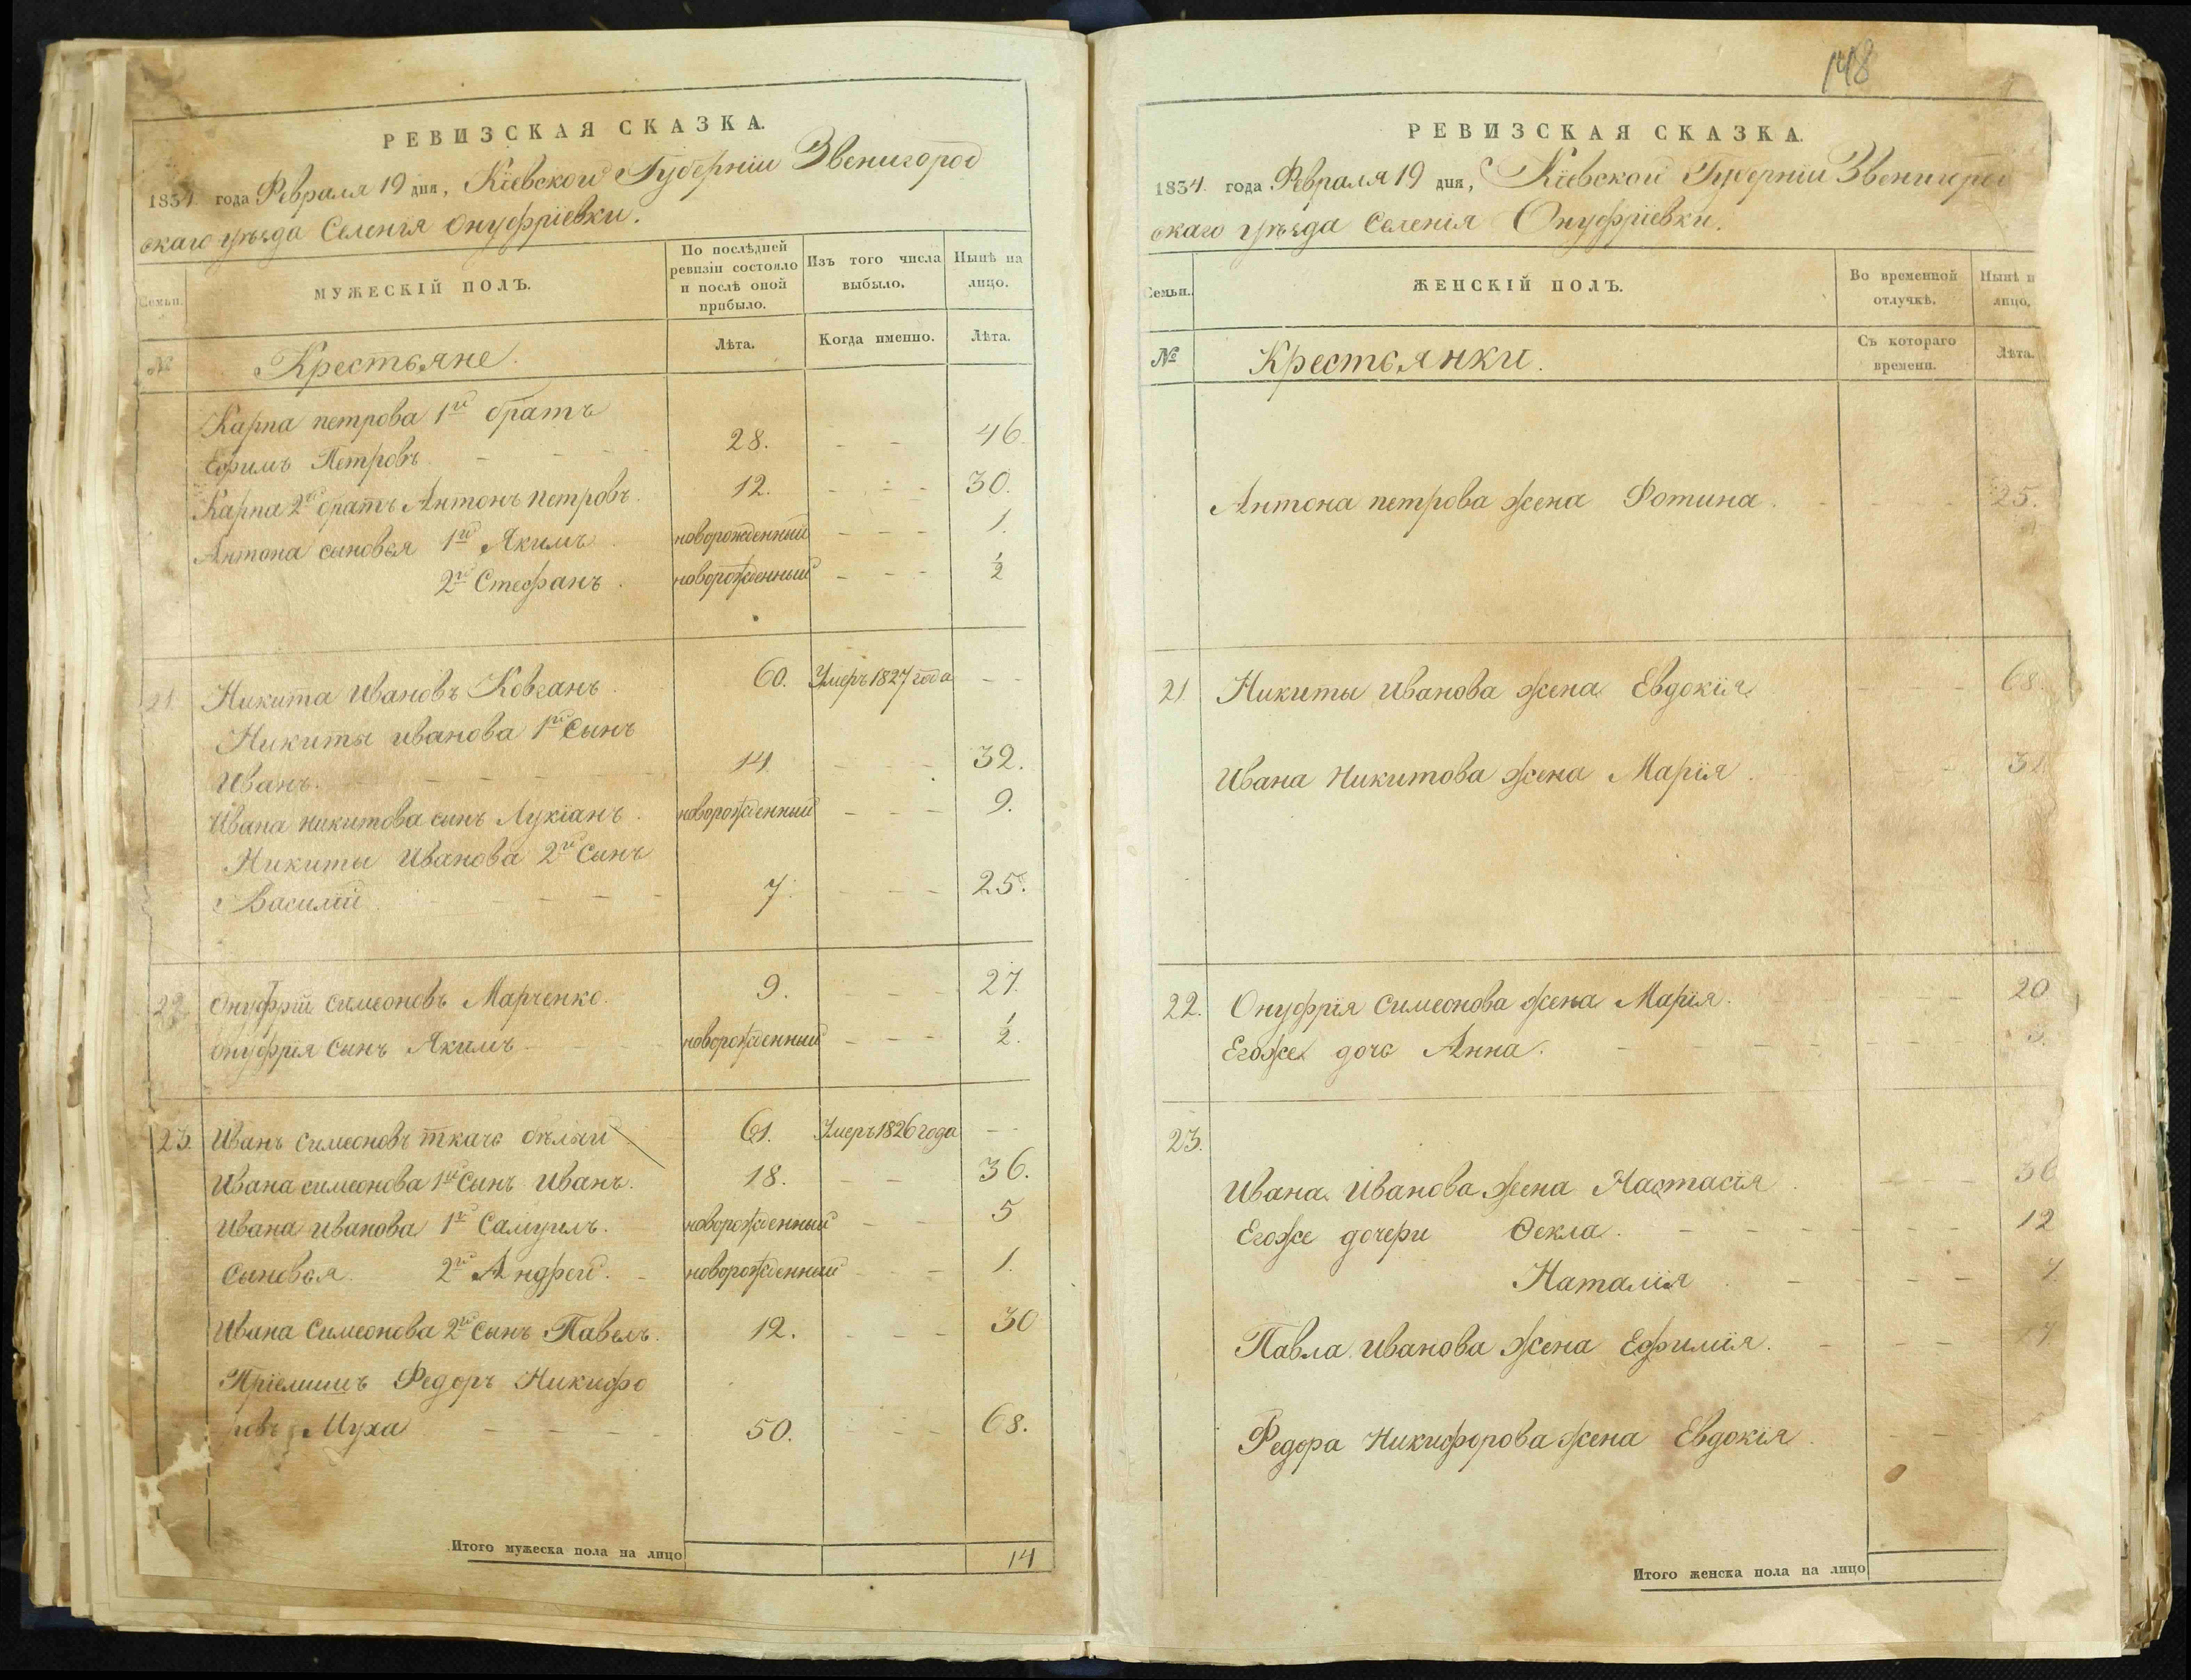 РЕВИЗСКАЯ СКАЗКА.
1834. года Февраля 19 дня, Кіевской Губерніи Звенигород
скаго уѣзда Селенія Онуфріевки.
Семьи.
МУЖЕСКІЙ ПОЛЪ.
По послѣдней ревизіи состояло и послѣ оной прибыло.
Изъ того числа выбыло.
Нынѣ на лицо.
№ Крестьяне. Лѣта. Когда именно. Лѣта.
Карпа петрова 1й братъ
Ефимъ Петровъ - - - 28. - - 46.
Карпа 2й братъ Антонъ петровъ. 12. - - - 30.
Антона сыновья 1й Якимъ новорожденный - - - 1.
2й Стефанъ. новорожденный - - - 1/2
21. Никита Ивановъ Ковганъ. 60. Умеръ 1827 года - -
Никиты иванова 1й Сынъ
Иванъ. - - - - - 14 - - - 32.
Ивана никитова сынъ Лукіанъ. новорожденный - - - 9.
Никиты Иванова 2й Сынъ
Василій. - - - - - 7. - - - 25.
22. Онуфрій симеоновъ Марченко. 9. - - - 27.
Онуфрія сынъ Якимъ - - - новорожденный - - - 1/2.
23. Иванъ симеоновъ ткачь бѣлый 61. Умеръ 1826 года - -
Ивана симеонова 1й Сынъ Иванъ. 18. - - 36.
Ивана иванова 1й Самуилъ. новорожденный - - 5
Сыновья. 2й Андрей. - новорожденный - - 1.
Ивана Симеонова 2й сынъ Павелъ. 12. - - - 30
Пріемышъ Федоръ Никифо
ровъ Муха - - - - 50. - - - 68.
Итого мужеска пола на лицо 14
148
РЕВИЗСКАЯ СКАЗКА.
1834. года Февраля 19 дня, Кіевской Губерніи Звенигрод
скаго уѣзда Селенія Онуфріевки.
Семьи.
ЖЕНСКІЙ ПОЛЪ.
Во временной отлучкѣ.
Нынѣ н лицо.
№ Крестьянки. Съ котораго времени. Лѣта.
Антона петрова жена Фотина. - - - - 25.
21. Никиты иванова жена Евдокія - - 68.
Ивана Никитова жена Марія. - - 31
22. Онуфрія симеонова жена Марія. - - 20
Егоже дочь Анна. - - - - - - -
23.
Ивана Иванова жена Настасія. - - - 36
Егоже дочери Ѳекла. - - - - - - - 12
Наталія. - - - - - 7
Павла иванова жена Ефимія. - - -
Федора Никифорова жена Евдокія. - -
Итого женска пола на лицо